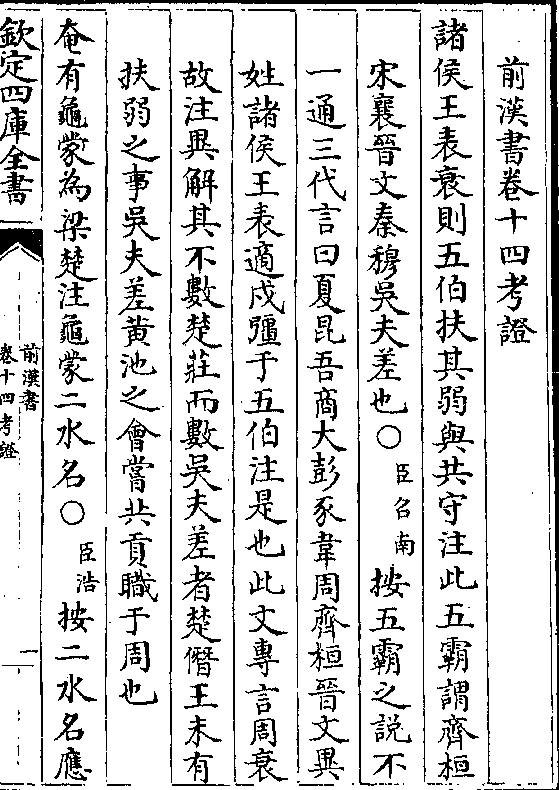 前漢書卷十四考證
諸侯王表衰則五伯扶其弱與共守注此五霸謂齊桓
宋襄晉文秦穆吳夫差也○臣召南按五霸之說不
一通三代言曰夏昆吾商大彭豕韋周齊桓晉文異
姓諸侯王表適戍彊于五伯注是也此文專言周衰
故注異解其不數楚莊而數吳夫差者楚僭王未有
扶弱之事吳夫差黃池之會嘗共貢職于周也
奄有龜蒙為梁楚注龜蒙二水名○臣浩按二水名應
欽定四庫全書
前漢書
卷十四考證
一